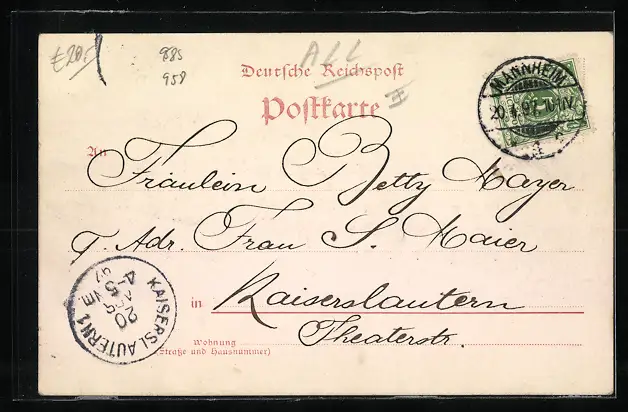 €20.-
985
958
ALL
Deutsche Reichspost
Postkarte
MANNHEIM
20. 4. 97.
1
An
Fräulein Betty Mayer
p. Adr. Frau S. Maier
in Kaiserslautern
Theaterstr.
Wohnung
(Straße und Hausnummer)
KAISERSLAUTERN 1
20
4
97